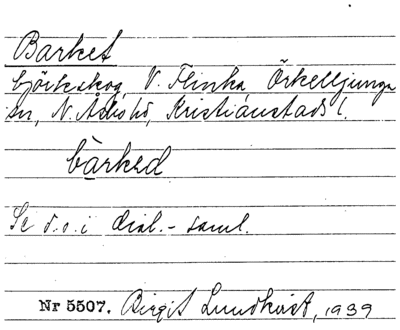 Barket
björkskog, V. Flinka, Örkelljunga
sn, N. Åsbo hd, Kristianstads l.
bàrked
Se d.o. i dial.-saml.
Nr 5507. Birgit Lundkvist, 1939